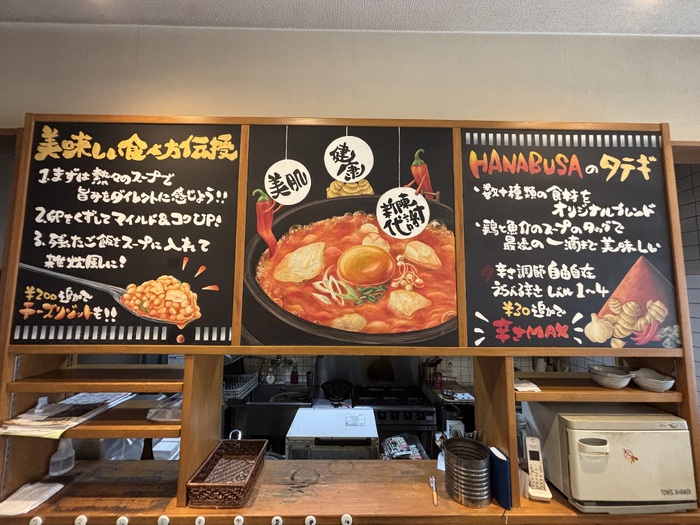 美味しい食べ方伝授
1.まずは熱々のスープで
旨みをダイレクトに感じよう!!
2.卵をくずしてマイルド&コクUP!
3.残ったご飯をスープに入れて
雑炊風に!
¥200追加で
チーズリゾットも!!
美肌
健康
新陳
代謝
HANABUSAのタテギ
・数十種類の食材を
オリジナルブレンド
・鶏と魚介のスープのタッグで
最後の一滴まで美味しい
辛さ調節自由自在
えらべる辛さ レベル1〜4
¥30追加で
辛さMAX
TOWEL WARMER